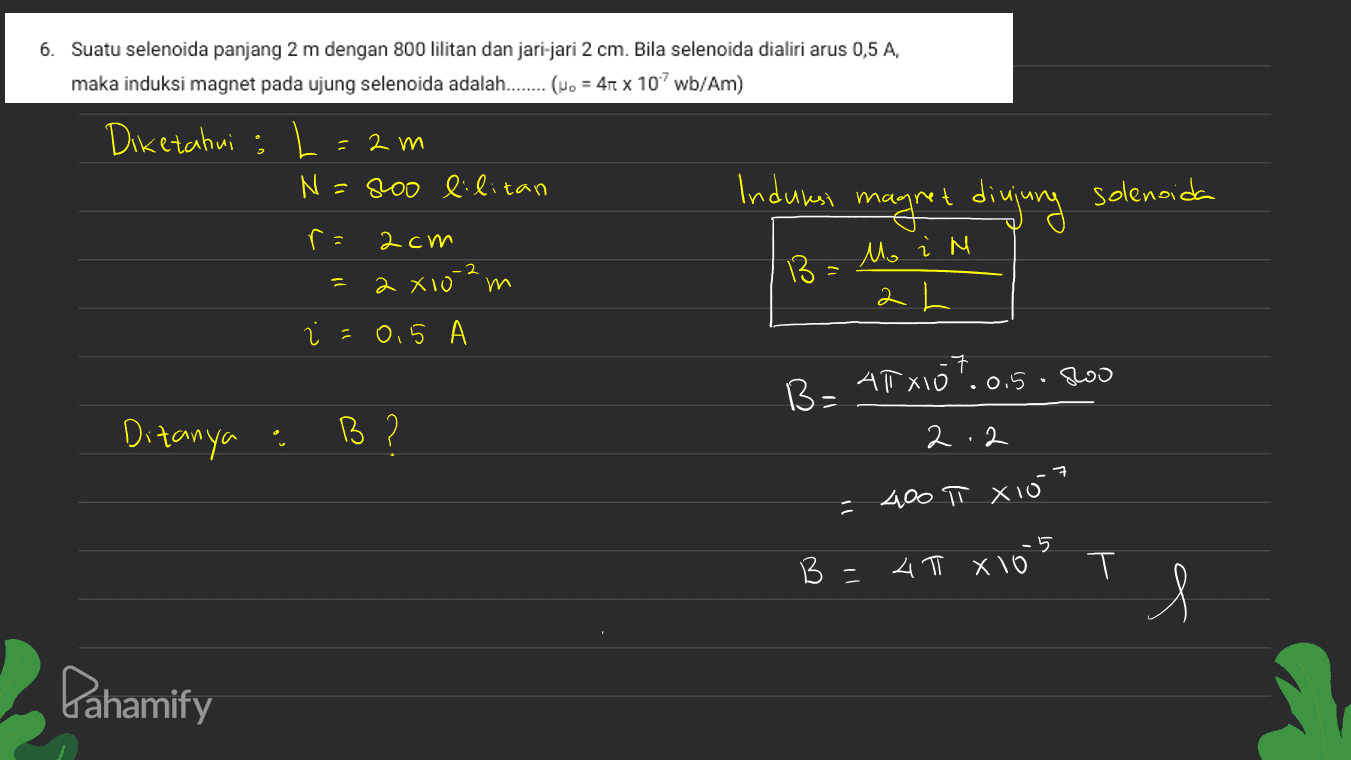 6. Suatu selenoida panjang 2 m dengan 800 lilitan dan jari-jari 2 cm. Bila selenoida dialiri arus 0,5 A,
maka induksi magnet pada ujung selenoida adalah........ (μ₀ = 4π x 10⁻⁷ wb/Am)
Diketahui : L = 2 m
N = 800 lilitan
r = 2 cm
= 2 x10⁻² m
i = 0,5 A
Ditanya : B ?
Induksi magnet diujung solenoida
B = μ₀ i N / 2 L
B = 4π x10⁻⁷ . 0,5 . 800 / 2 . 2
= 400 π x10⁻⁷
B = 4π x10⁻⁵ T
Pahamify